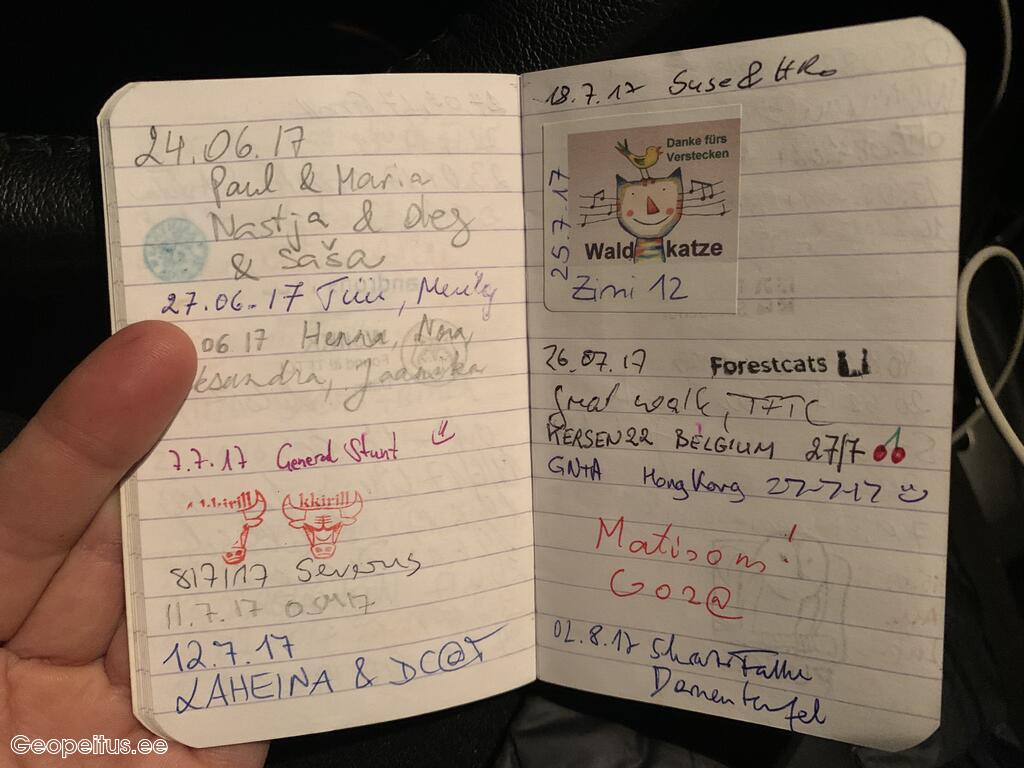 24.06.17
Paul & Maria
Nastja & Oleg
& Saša
27.06.17
06 17 Henna, Nora
7.7.17 General Stunt
kkirill kkirill
8/7/17 Severus
11.7.17
12.7.17
LAHEINA & DC@T
18.7.17 Suse & HRo
Danke fürs
Verstecken
25.7.17
Wald katze
Zimi 12
26.07.17 Forestcats
Great walk, TFTC
KERSEN22 BELGIUM 27/7
GN+A Hong Kong 27-7-17
Matisom!
GO2@
02.8.17
Geopeitus.ee